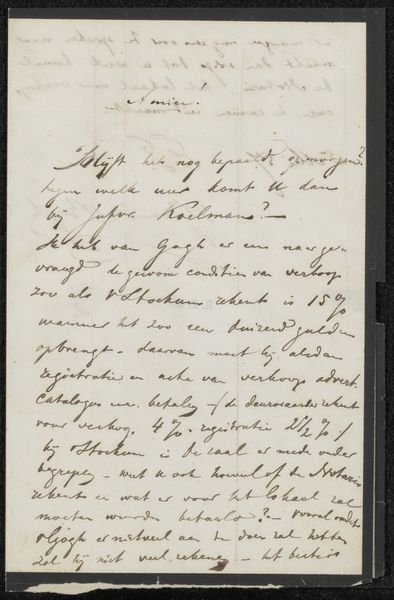 Amice!
Blijft het nog bepaald op morgen?
tegen welk uur komt U dan
bij Jufvr. Koelman?—
Ik heb van Gogh er eens naar ge-
vraagd de gewone condities van verkoop
zoo als v Stockum rekent is 15 %
wanneer het zoo een duizend gulden
opbrengt - daarvan moet hij
registratie en acte van verkoop advert.
catalogus enz. betalen - (de rekent
voor verkoop. 4 %. registratie 2 1/2 %.)
bij v Stockum is de zaal er mede onder
begrepen - wat u ook hoeveel of de Notaris
rekent en wat er voor het lokaal zal
moeten worden betaald? - vooral omdat
v Gogh er niet veel aan te doen zal hebben
zal hij niet veel rekenen - het beste is